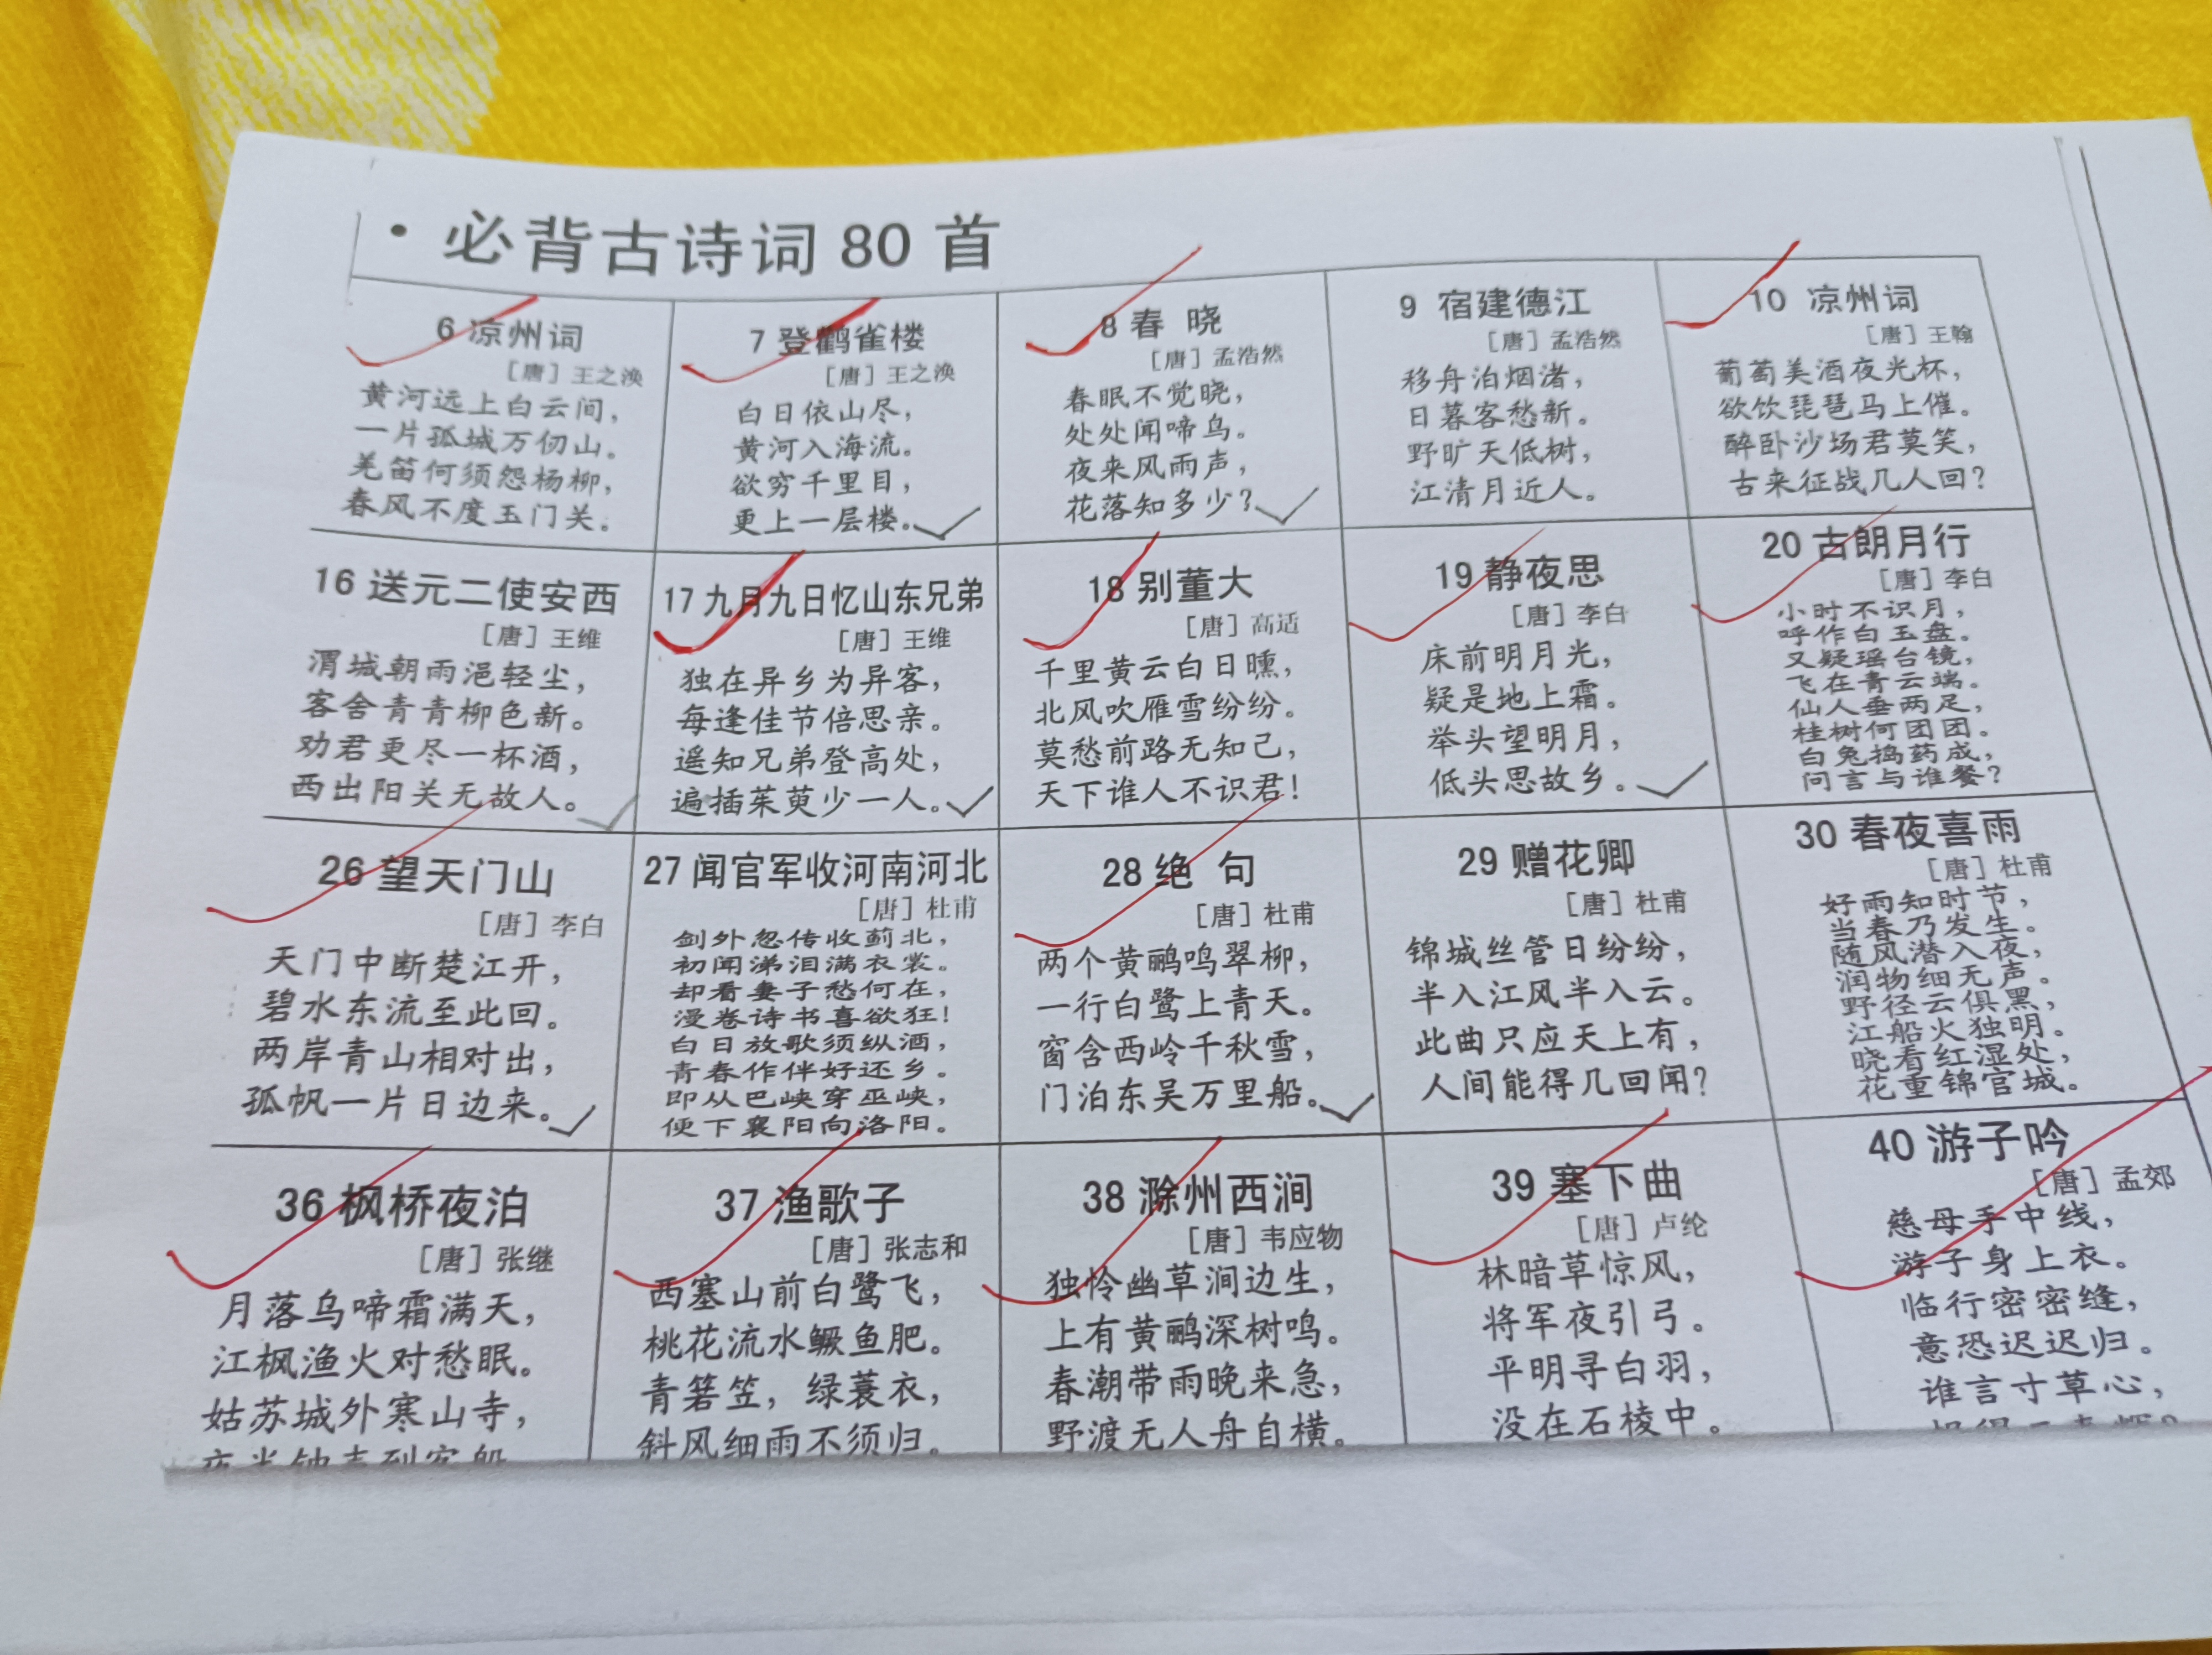 ·必背古诗词80首
6 凉州词
[唐]王之涣
黄河远上白云间，
一片孤城万仞山。
羌笛何须怨杨柳，
春风不度玉门关。
7 登鹳雀楼
[唐]王之涣
白日依山尽，
黄河入海流。
欲穷千里目，
更上一层楼。
8 春 晓
[唐]孟浩然
春眠不觉晓，
处处闻啼鸟。
夜来风雨声，
花落知多少？
9 宿建德江
[唐]孟浩然
移舟泊烟渚，
日暮客愁新。
野旷天低树，
江清月近人。
10 凉州词
[唐]王翰
葡萄美酒夜光杯，
欲饮琵琶马上催。
醉卧沙场君莫笑，
古来征战几人回？
16 送元二使安西
[唐]王维
渭城朝雨浥轻尘，
客舍青青柳色新。
劝君更尽一杯酒，
西出阳关无故人。
17 九月九日忆山东兄弟
[唐]王维
独在异乡为异客，
每逢佳节倍思亲。
遥知兄弟登高处，
遍插茱萸少一人。
18 别董大
[唐]高适
千里黄云白日曛，
北风吹雁雪纷纷。
莫愁前路无知己，
天下谁人不识君！
19 静夜思
[唐]李白
床前明月光，
疑是地上霜。
举头望明月，
低头思故乡。
20 古朗月行
[唐]李白
小时不识月，
呼作白玉盘。
又疑瑶台镜，
飞在青云端。
仙人垂两足，
桂树何团团。
白兔捣药成，
问言与谁餐？
26 望天门山
[唐]李白
天门中断楚江开，
碧水东流至此回。
两岸青山相对出，
孤帆一片日边来。
27 闻官军收河南河北
[唐]杜甫
剑外忽传收蓟北，
初闻涕泪满衣裳。
却看妻子愁何在，
漫卷诗书喜欲狂！
白日放歌须纵酒，
青春作伴好还乡。
即从巴峡穿巫峡，
便下襄阳向洛阳。
28 绝 句
[唐]杜甫
两个黄鹂鸣翠柳，
一行白鹭上青天。
窗含西岭千秋雪，
门泊东吴万里船。
29 赠花卿
[唐]杜甫
锦城丝管日纷纷，
半入江风半入云。
此曲只应天上有，
人间能得几回闻？
30 春夜喜雨
[唐]杜甫
好雨知时节，
当春乃发生。
随风潜入夜，
润物细无声。
野径云俱黑，
江船火独明。
晓看红湿处，
花重锦官城。
36 枫桥夜泊
[唐]张继
月落乌啼霜满天，
江枫渔火对愁眠。
姑苏城外寒山寺，
夜半钟声到客船
37 渔歌子
[唐]张志和
西塞山前白鹭飞，
桃花流水鳜鱼肥。
青箬笠，绿蓑衣，
斜风细雨不须归。
38 滁州西涧
[唐]韦应物
独怜幽草涧边生，
上有黄鹂深树鸣。
春潮带雨晚来急，
野渡无人舟自横。
39 塞下曲
[唐]卢纶
林暗草惊风，
将军夜引弓。
平明寻白羽，
没在石棱中。
40 游子吟
[唐]孟郊
慈母手中线，
游子身上衣。
临行密密缝，
意恐迟迟归。
谁言寸草心，